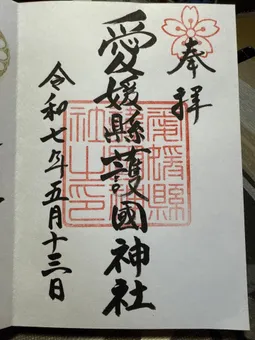 奉拝
愛媛縣護國神社
令和七年五月十三日
愛媛縣護國神社之印